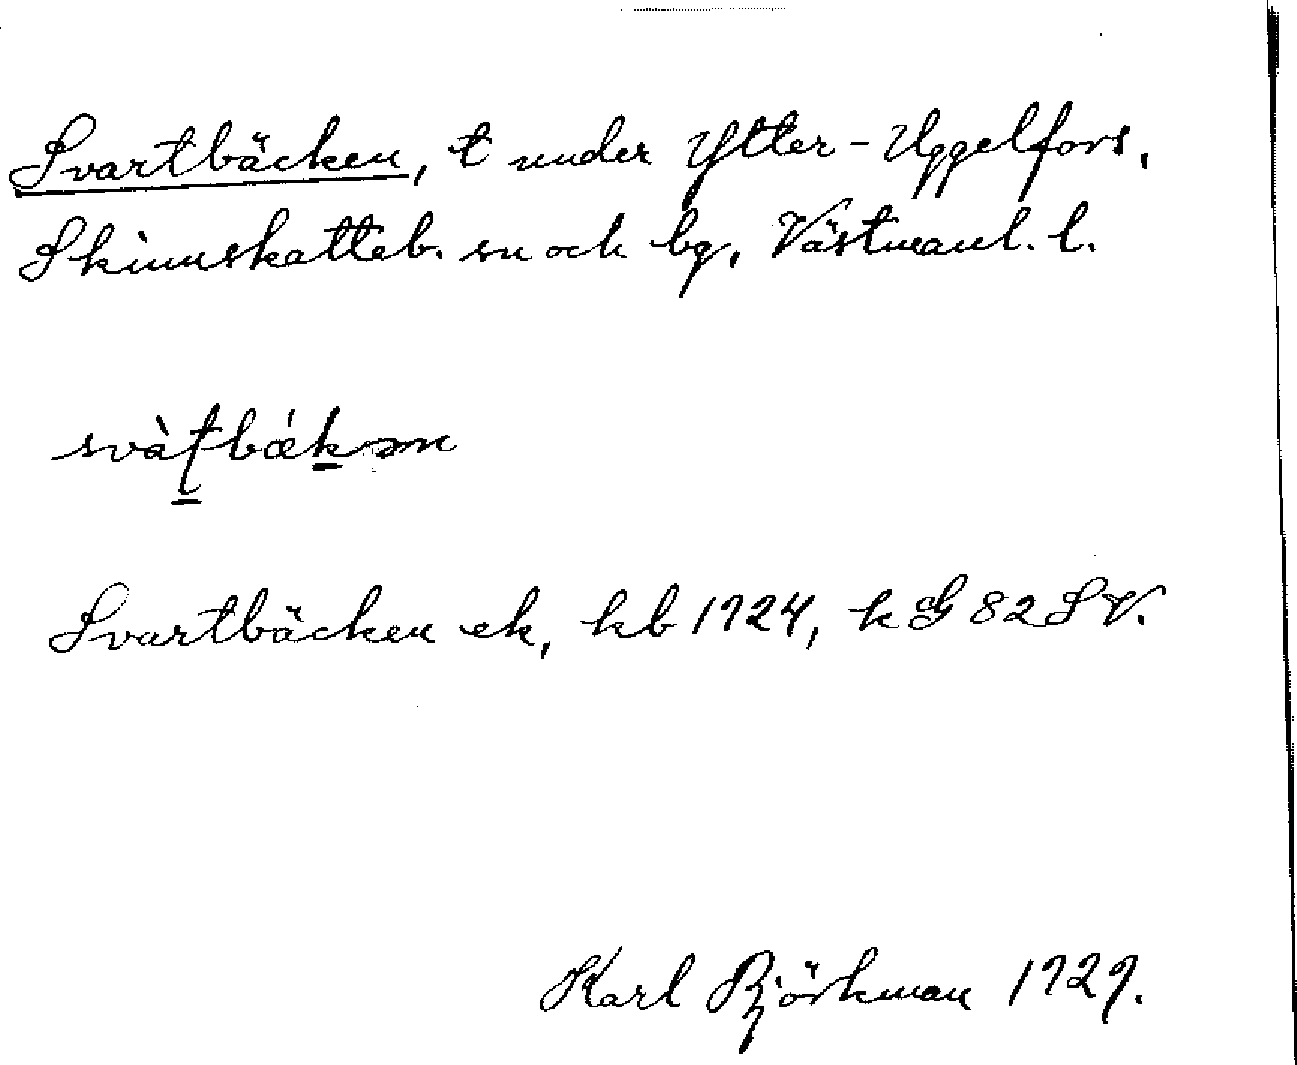 Svartbäcken, t under Ytter-Uggelfors,
Skinnskatteb. sn och bg, Västmanl. l.
svàʈbǽkən
Svartbäcken ek, kb 1924, k G 82 S V.
Karl Björkman 1929.